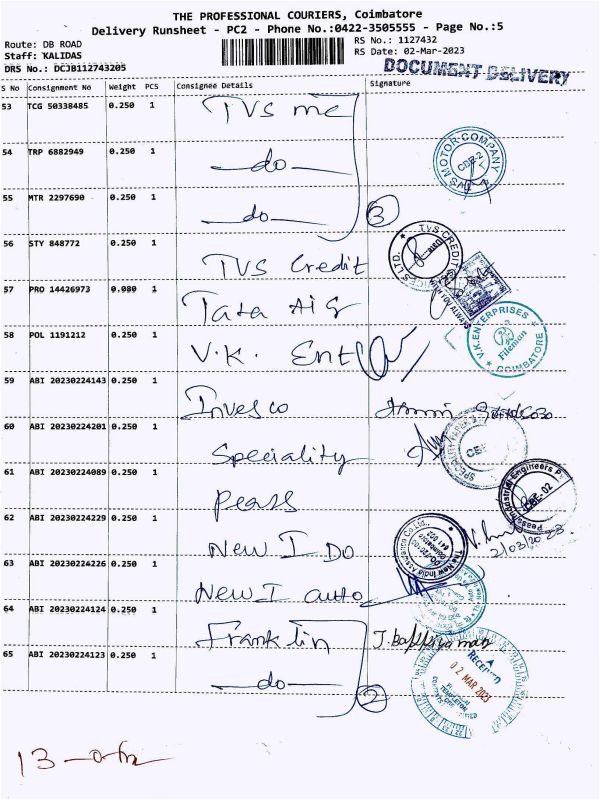 THE PROFESSIONAL COURIERS, Coimbatore
Delivery Runsheet - PC2 - Phone No.:0422-3505555 - Page No.:5
Route: DB ROAD
RS No.: 1127432
Staff: KALIDAS
RS Date: 02-Mar-2023
DRS No.: DCJB112743205
DOCUMENT DELIVERY
S No Consignment No Weight PCS Consignee Details Signature
53 TCG 50338485 0.250 1 TVS mc
54 TRP 6882949 0.250 1 -do-
MOTOR COMPANY
55 MTR 2297690 0.250 1 -do-
3
56 STY 848772 0.250 1 TVS Credit
TVS CREDIT
57 PRO 14426973 0.080 1 Tata AIG
58 POL 1191212 0.250 1 V.K. Ent
V.K. ENTERPRISES
Fileman
COIMBATORE
59 ABI 20230224143 0.250 1 Invesco
60 ABI 20230224201 0.250 1 Speciality
61 ABI 20230224089 0.250 1 Peass
Industrial Engineers P.
CBE-02
62 ABI 20230224229 0.250 1 New I Do
The New India Assurance Co. Ltd.
63 ABI 20230224226 0.250 1 New I auto
64 ABI 20230224124 0.250 1 Franklin
65 ABI 20230224123 0.250 1 -do-
RECEIVED
02 MAR 2023
2
13